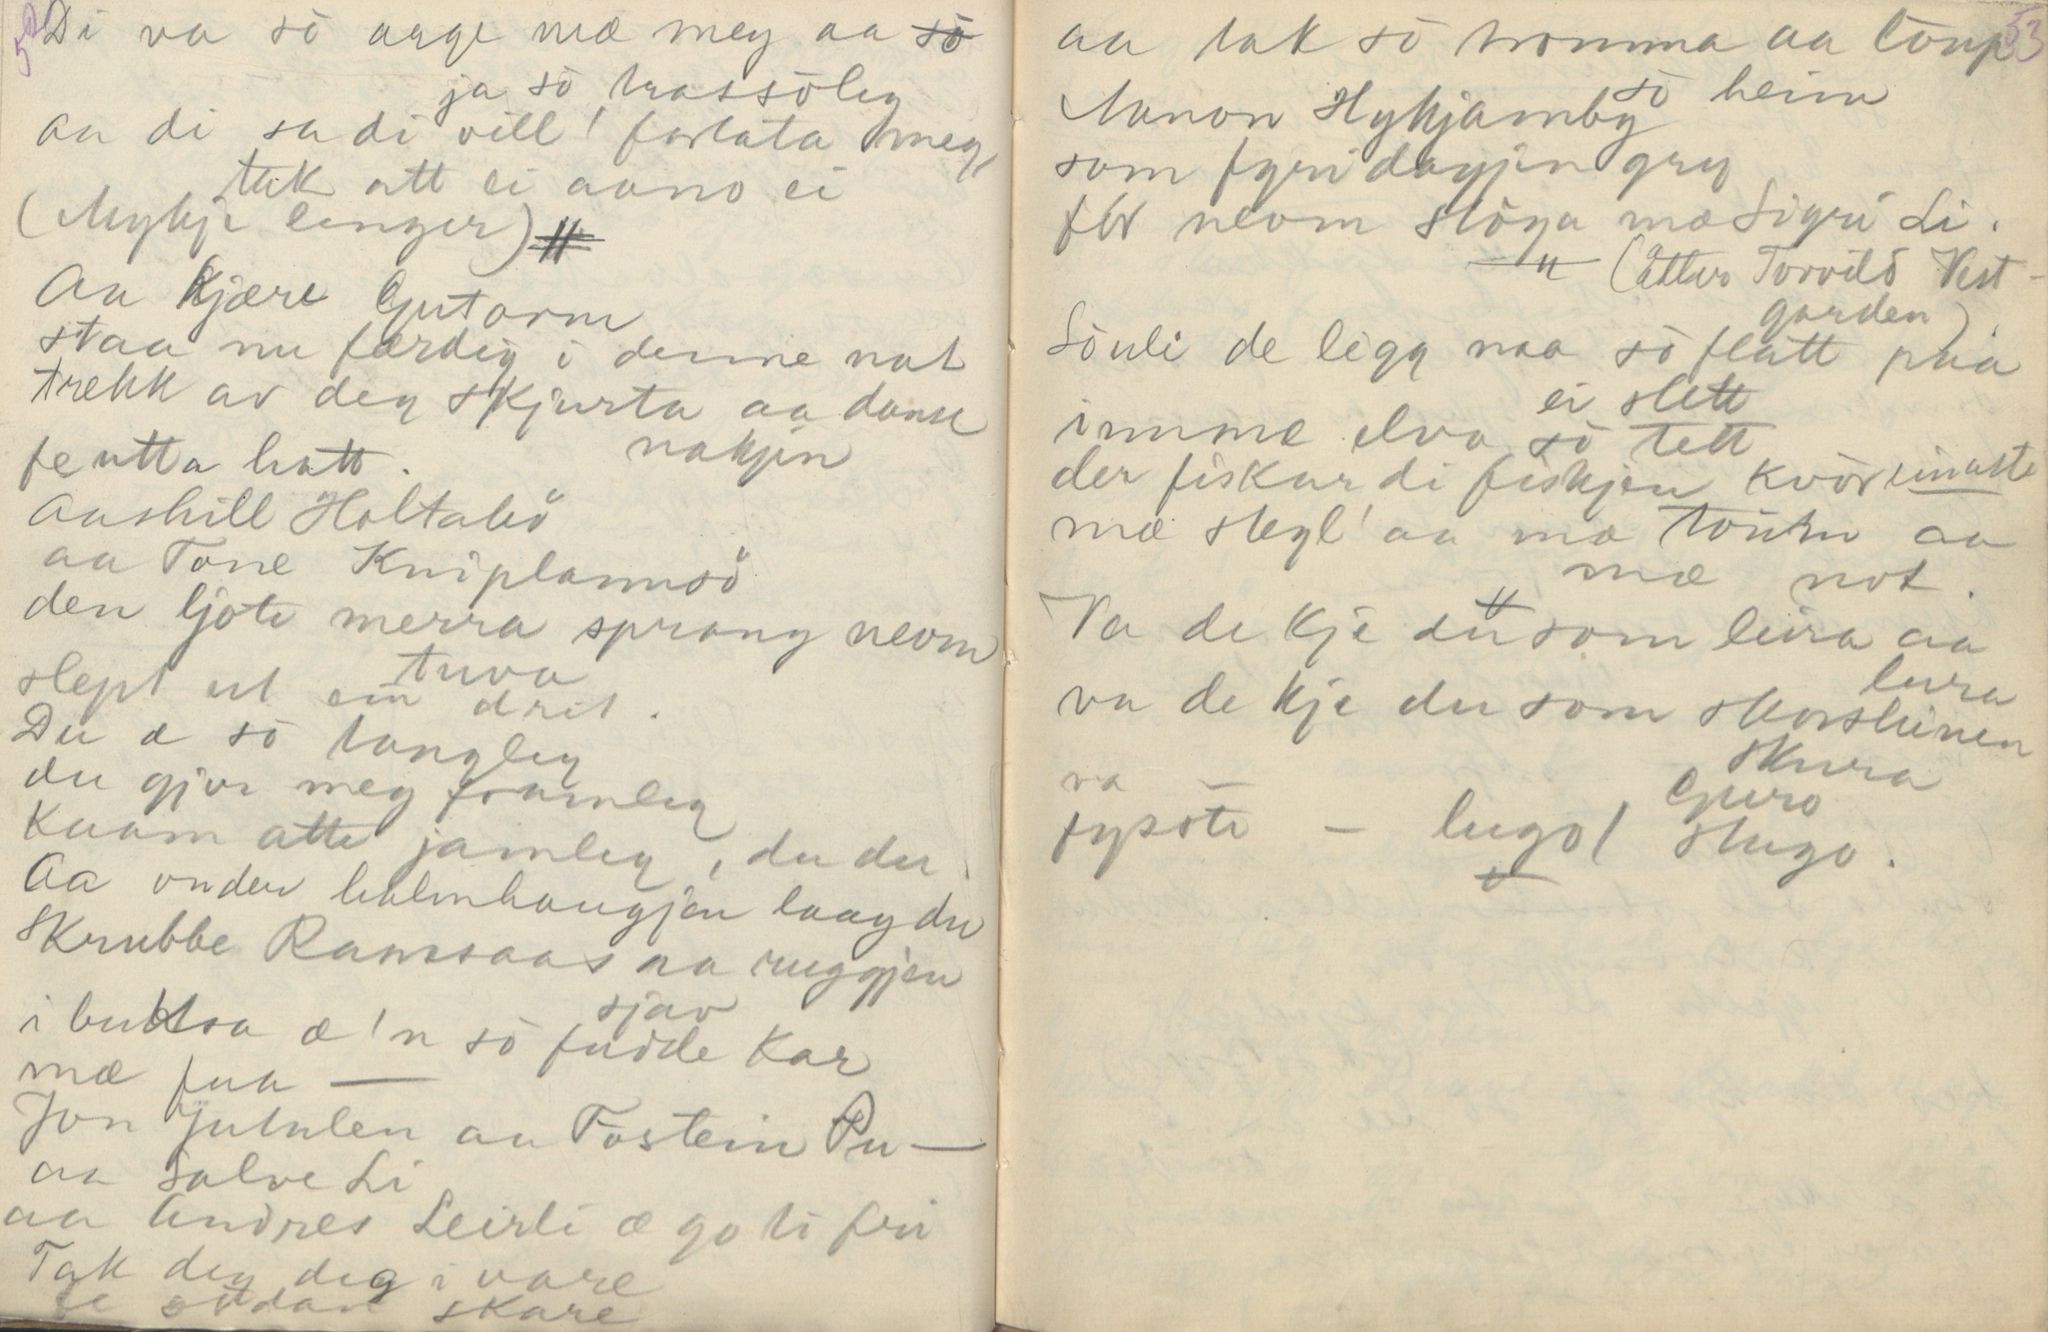 52
Di va sö arge mæ meg aa sö
ja sö trassöleg
aa di sa di vill' forlata meg,
tak att ei aano ei
(Mykje lenger) #
Aa Kjære Gutorm
staa nu færdig i denne nat
trekk av deg skjurta aa danse
nakjin
fe utta hatt.
Aashill Holtabö
aa Tone Kniplanusö
den ljote merra sprang neom
tuva
slept ut ein drit.
Du æ sö tangleg
du gjør meg framleg
Kaam atte jamleg, du du
Aa under halmhaugjen laag du
Skrubbe Ramsaas aa ruggjen
sjav
i buksa æ 'n sö fudde Kar
mæ fua —
Jon Jutulen aa Tostein Ru —
aa Salve Li
aa Andres Leirli æ go ti fri
Tak deg deg i vare
fe södan skare
53
aa tak sö tromma aa loup
sö heim
Manon Hykjamby
som fyri dagjin gry
fór neom Stöga mæ Sigri Li.
— " — (Etter Torvild Vest-
garden).
Söuli de ligg naa sö flatt paa
ei slett
imume elva sö tett
der fiskar di fiskjen kvör einaste
mæ stegl' aa mæ touku aa
mæ not.
"
Va de kje du som leira aa
lura
va de kje du som skorsteinen
skura
va — Guro
fysöte — lugol stugo.